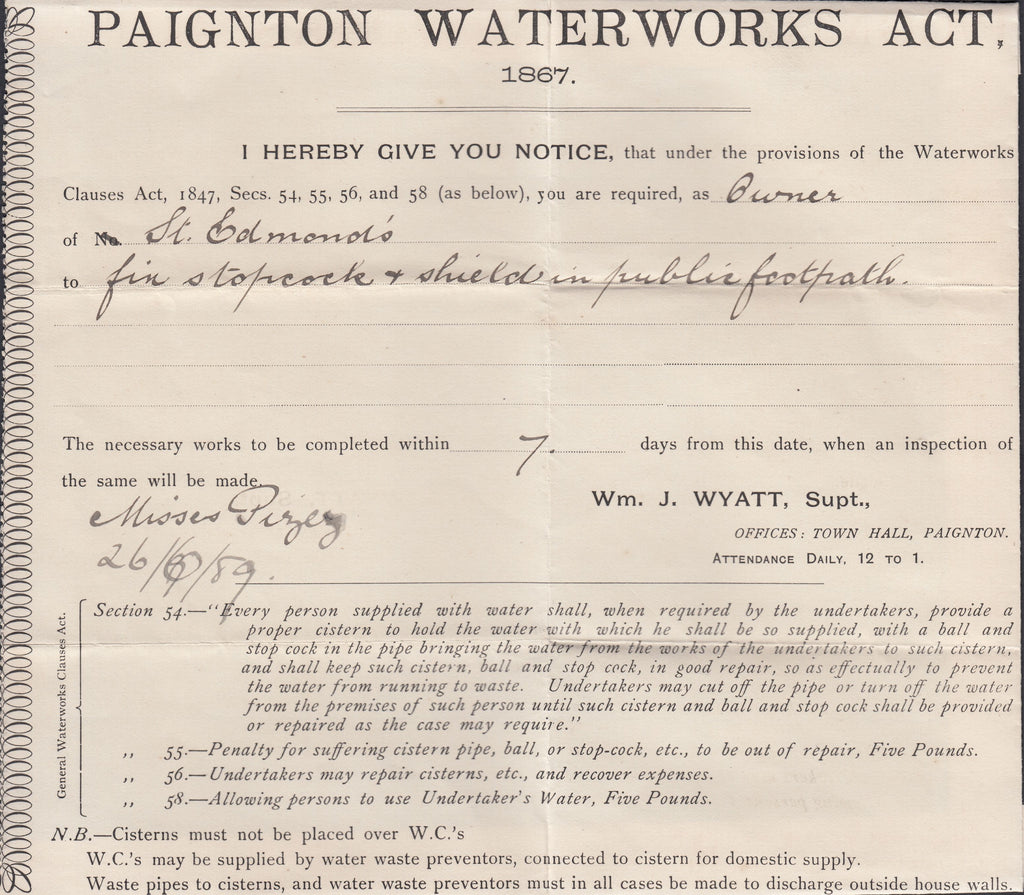 PAIGNTON WATERWORKS ACT,
1867.
I HEREBY GIVE YOU NOTICE, that under the provisions of the Waterworks
Clauses Act, 1847, Secs. 54, 55, 56, and 58 (as below), you are required, as Owner
of No. St. Edmond's
to fix stopcock & shield in public footpath.
The necessary works to be completed within 7. days from this date, when an inspection of
the same will be made.
Misses
Wm. J. WYATT, Supt.,
OFFICES: TOWN HALL, PAIGNTON.
ATTENDANCE DAILY, 12 TO 1.
26/6/89.
General Waterworks Clauses Act.
Section 54.—"Every person supplied with water shall, when required by the undertakers, provide a
proper cistern to hold the water with which he shall be so supplied, with a ball and
stop cock in the pipe bringing the water from the works of the undertakers to such cistern,
and shall keep such cistern, ball and stop cock, in good repair, so as effectually to prevent
the water from running to waste. Undertakers may cut off the pipe or turn off the water
from the premises of such person until such cistern and ball and stop cock shall be provided
or repaired as the case may require."
,, 55.—Penalty for suffering cistern pipe, ball, or stop-cock, etc., to be out of repair, Five Pounds.
,, 56.—Undertakers may repair cisterns, etc., and recover expenses.
,, 58.—Allowing persons to use Undertaker's Water, Five Pounds.
N.B.—Cisterns must not be placed over W.C.'s
W.C.'s may be supplied by water waste preventors, connected to cistern for domestic supply.
Waste pipes to cisterns, and water waste preventors must in all cases be made to discharge outside house walls.